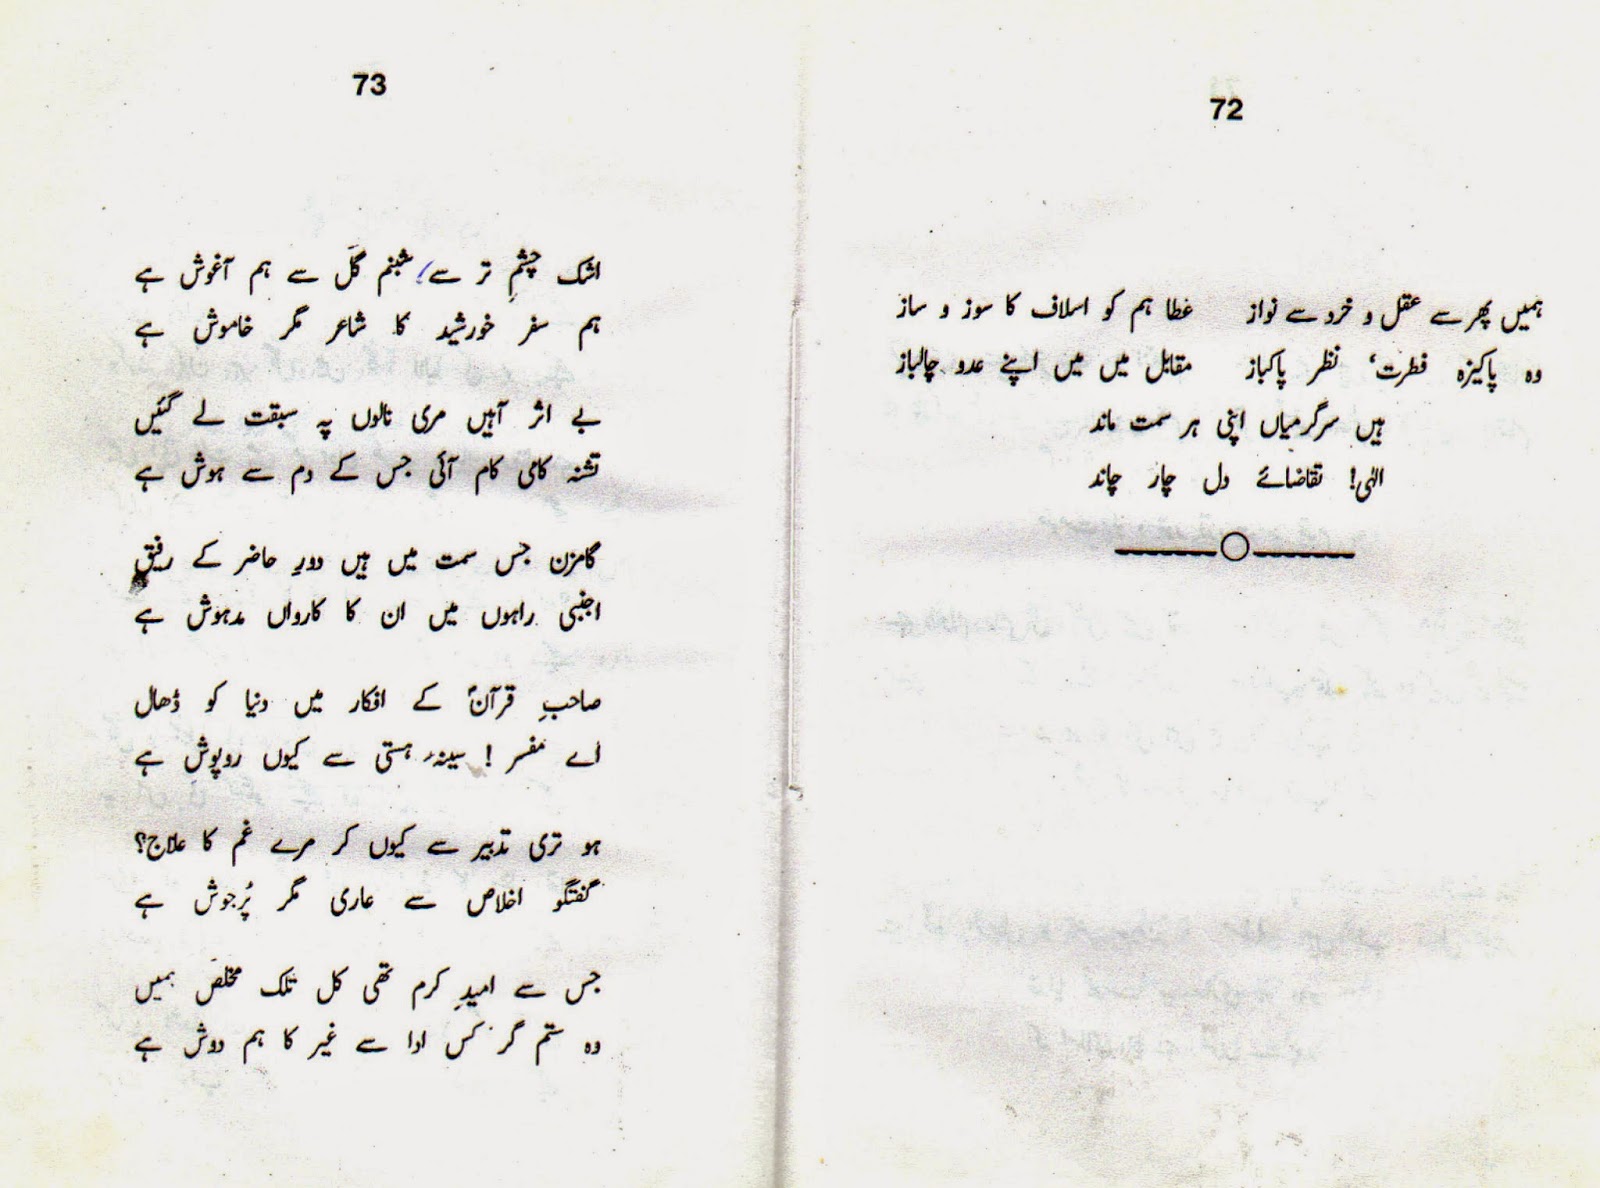 72
ہمیں پھر سے عقل و خرد سے نواز عطا ہم کو اسلاف کا سوز و ساز
وہ پاکیزہ فطرت، نظر پاکباز مقابل میں میں اپنے عدو چالباز
ہیں سرگرمیاں اپنی ہر سمت ماند
الٰہی! تقاضائے دل چار چاند
73
اشک چشمِ تر سے، شبنم گل سے ہم آغوش ہے
ہم سفر خورشید کا شاعر مگر خاموش ہے
بے اثر آہیں مری نالوں پہ سبقت لے گئیں
تشنہ کامی کام آئی جس کے دم سے ہوش ہے
گامزن جس سمت میں ہیں دورِ حاضر کے رفیق
اجنبی راہوں میں ان کا کارواں مدہوش ہے
صاحبِ قرآنؐ کے افکار میں دنیا کو ڈھال
اے مفسر ! سینۂ ہستی سے کیوں روپوش ہے
ہو تری تدبیر سے کیوں کر مرے غم کا علاج؟
گفتگو اخلاص سے عاری مگر پُرجوش ہے
جس سے امیدِ کرم تھی کل تلک مخلص ہمیں
وہ ستم گر کس ادا سے غیر کا ہم دوش ہے